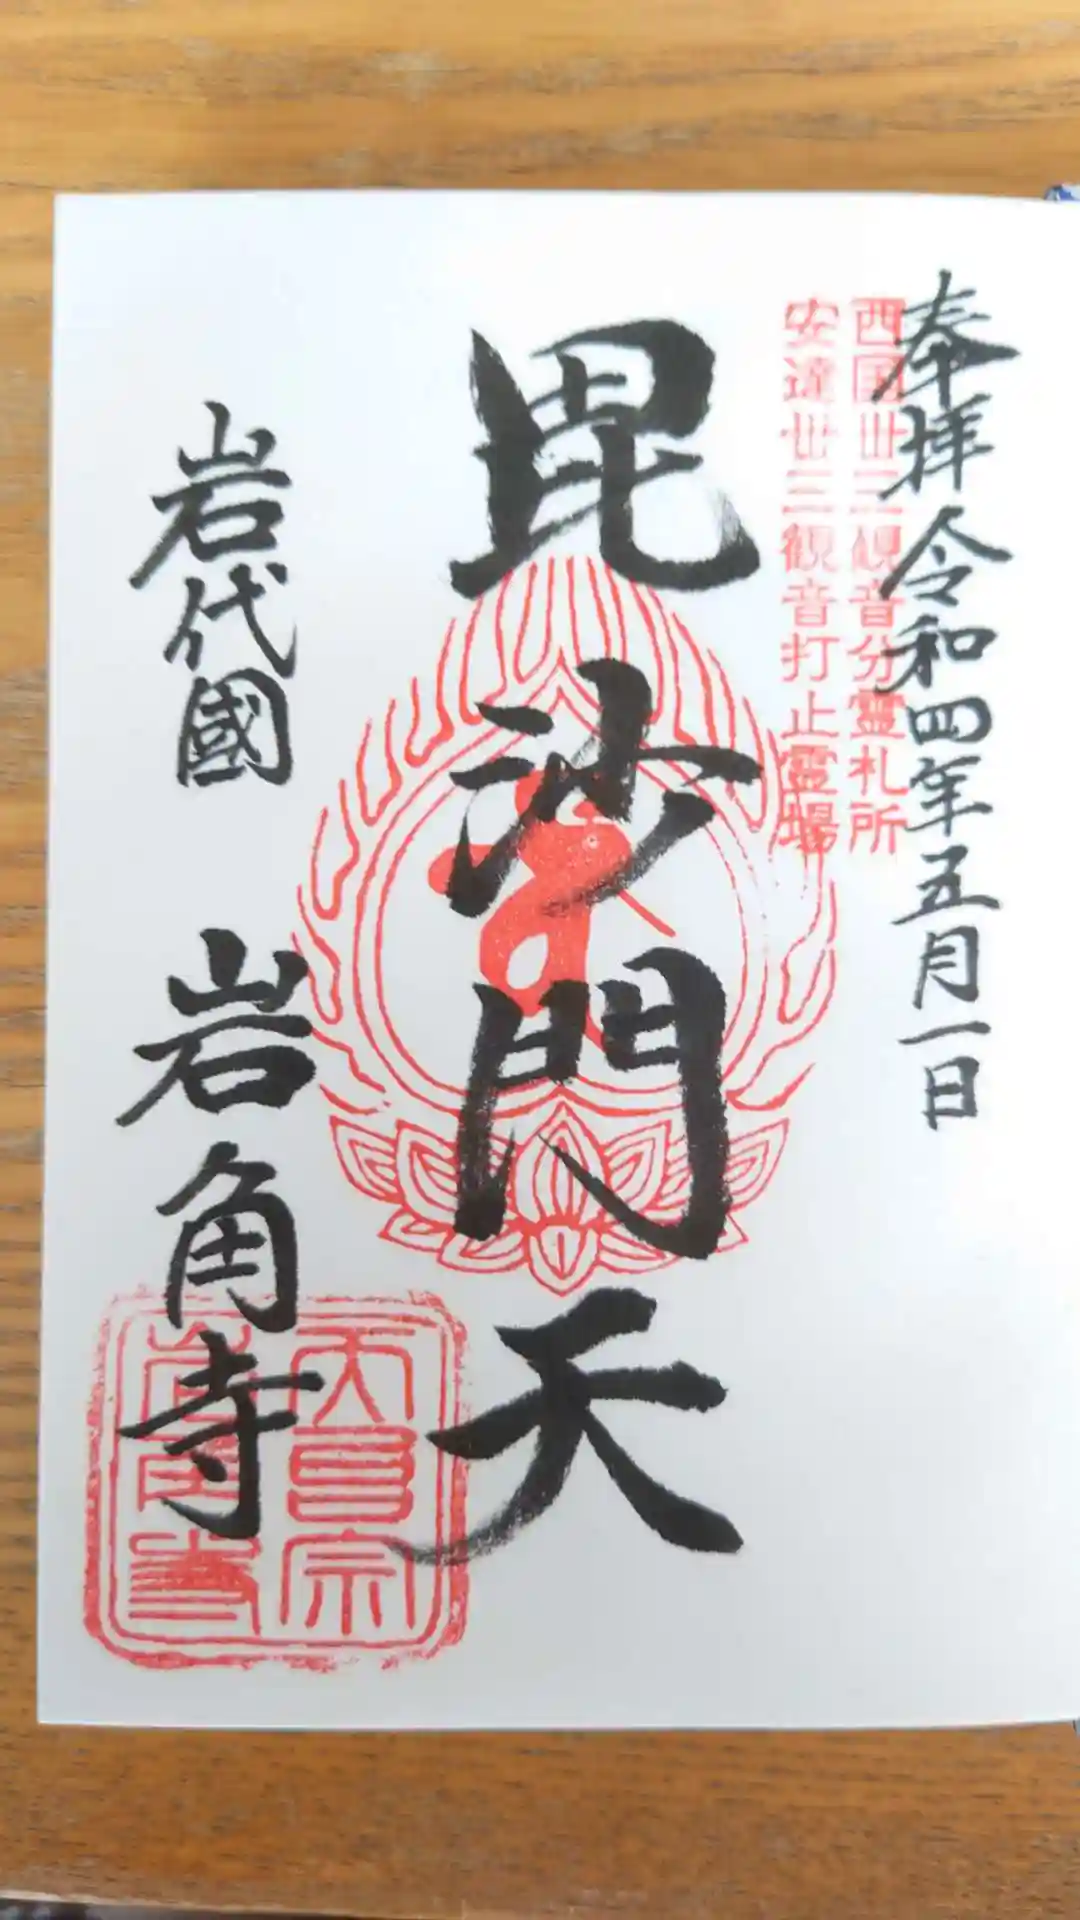 奉拝 令和四年五月一日
西国丗三観音分霊札所
安達丗三観音打止霊場
毘沙門天
岩代國 岩角寺
天台宗
岩角寺